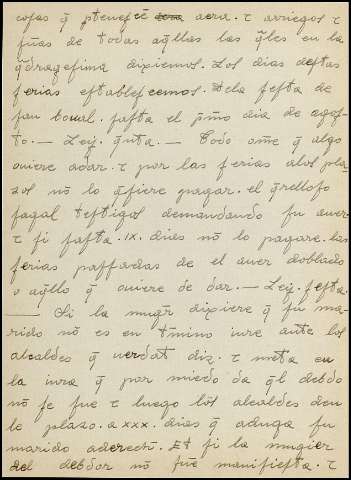 cosas q̄ ptenesçē aera. τ arriegos τ
fijas de todas aq̄llas las q̄les en la
q̄dragesima dixiemos. Los dias destas
ferias establesçemos. Dela festa de
san Ioual. fasta el pm̄o dia de agos-
to. — Ley. q̄nta. — Todo om̄e q̄ algo
ouiere adar. τ por las ferias alos pla-
zos nō lo q̄siere pagar. el q̄relloso
fagal testigos demandando su auer
τ si fasta .ix. dias nō lo pagare. las
ferias passadas de el auer doblado
o aq̄llo q̄ ouiere de dar. — Ley. sesta.
— Si la mugr̄ dixiere q̄ su ma-
rido nō es en tm̄ino iure ante los
alcaldes q̄ uerdat diz. τ meta en
la iura q̄ por miedo da q̄l debdo
nō se fue τ luego los alcaldes den
le plazo. a xxx. dias q̄ aduga su
marido aderecħ. Et si la mugier
del debdor nō fue̅ manifiesta. τ